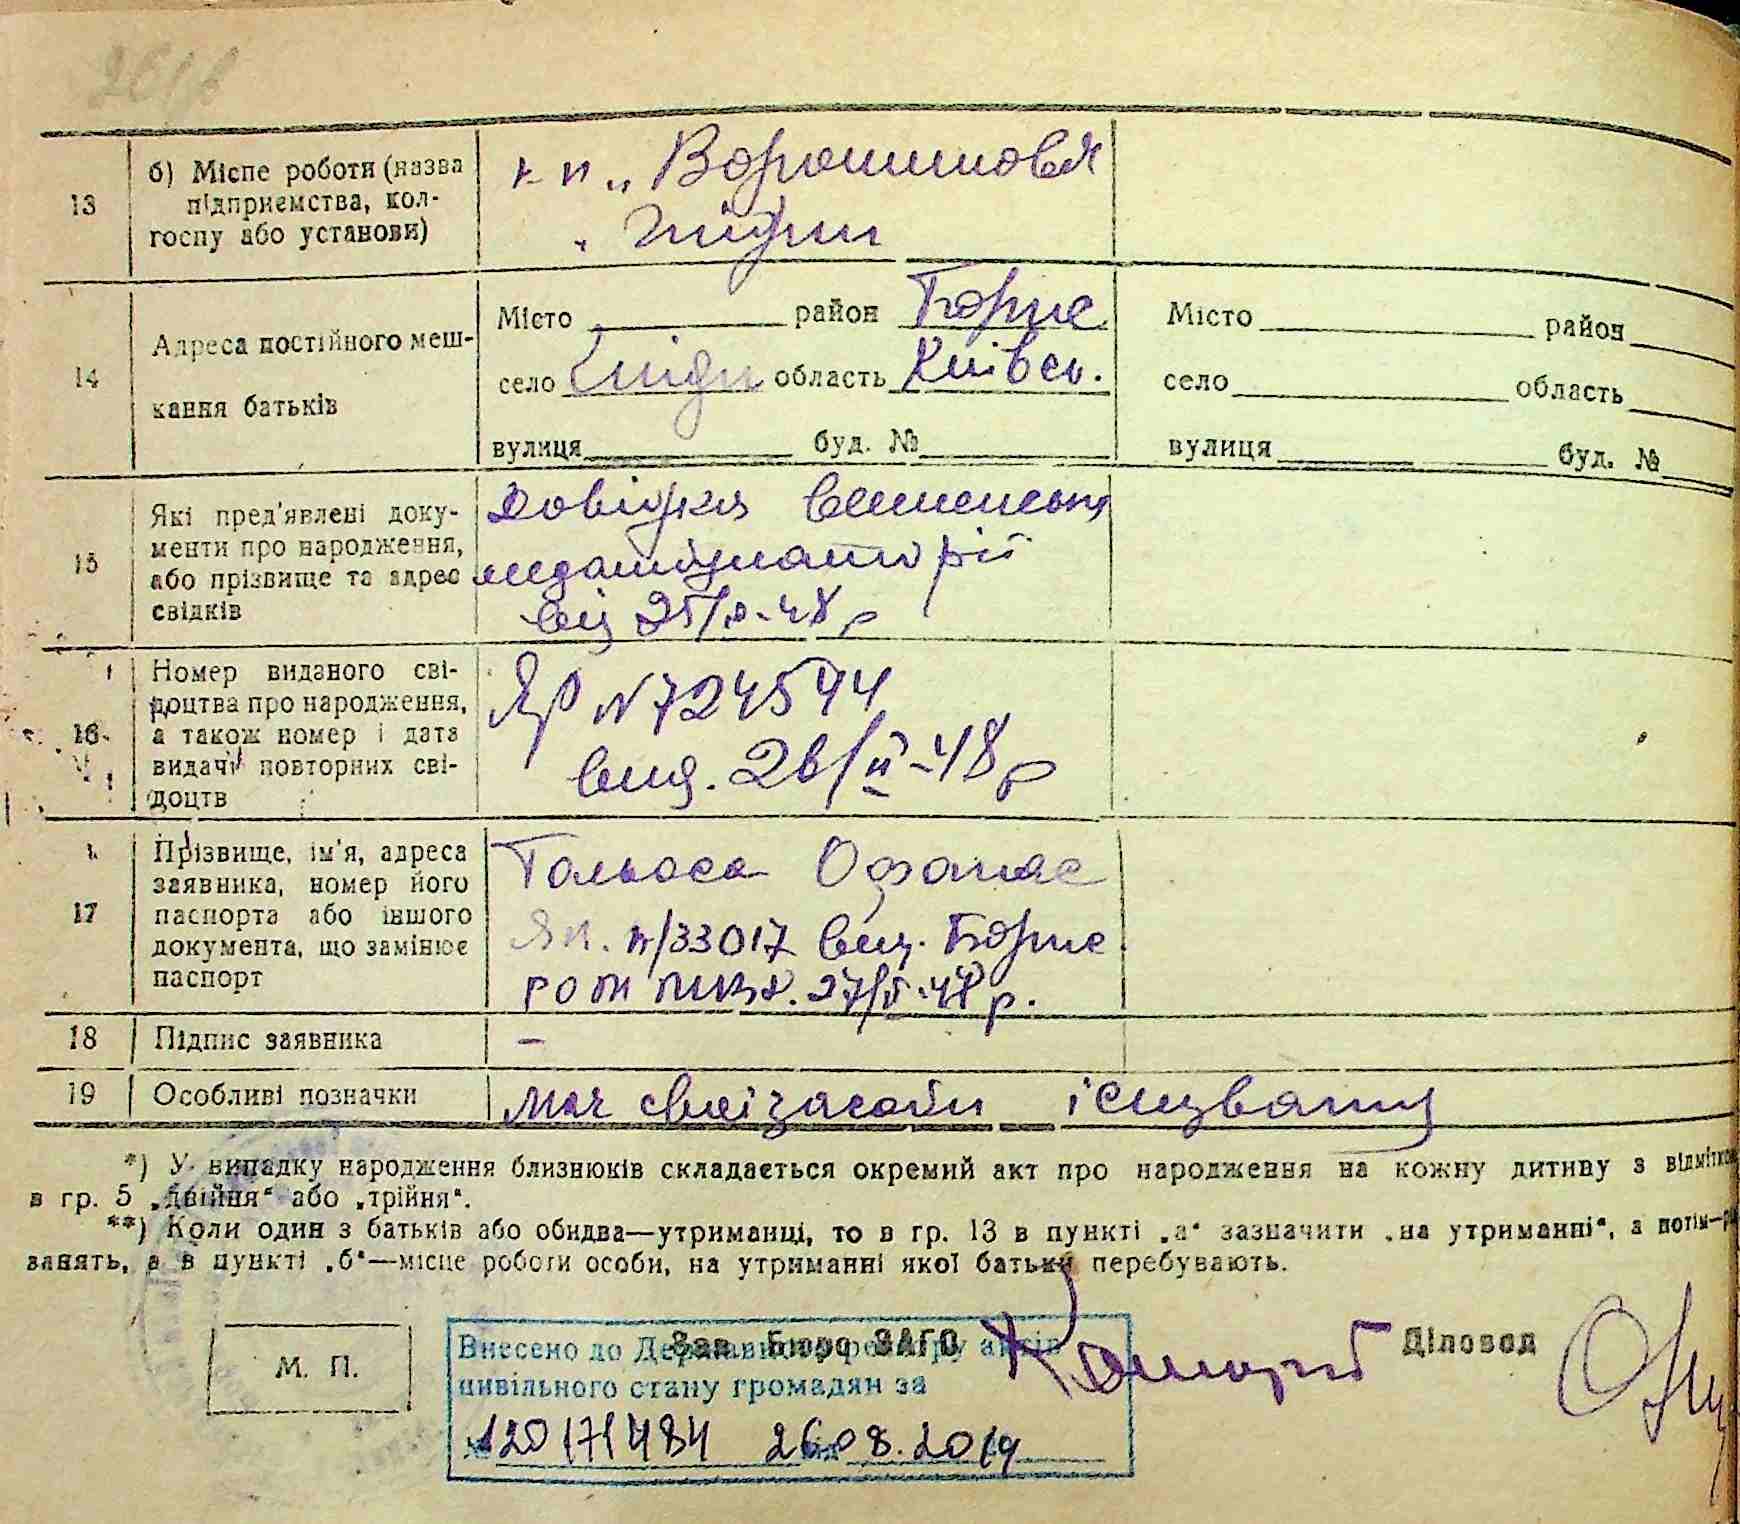 13
б) Місце роботи (назва
підприємства, кол-
госпу або установи)
к-п „Ворошилова
с. Гнідин
14
Адреса постійного меш-
кання батьків
Місто район Борис
село Гнідин область Київсь.
вулиця буд. №
Місто район
село область
вулиця буд. №
15
Які пред'явлені доку-
менти про народження,
або прізвище та адрес
свідків
Довідка
від 25/
48 р
16
Номер виданого сві-
доцтва про народження,
а також номер і дата
видачі повторних сві-
доцтв
ЯР N 724594
вид. 26/II-48 р
17
Прізвище, ім'я, адреса
заявника, номер його
паспорта або іншого
документа, що замінює
паспорт
Офанас
33017 вид. Борис
48 р.
18
Підпис заявника
–
19
Особливі позначки
має свої засоби існування
*) У випадку народження близнюків складається окремий акт про народження на кожну дитину з відміткою
в гр. 5 „двійня“ або „трійня“.
**) Коли один з батьків або обидва—утриманці, то в гр. 13 в пункті „а“ зазначити „на утриманні“, а потім—
занять, а в пункті „б“—місце роботи особи, на утриманні якої батьки перебувають.
М. П.
Зав. Бюро ЗАГС
Діловод
Внесено до Державного реєстру актів
цивільного стану громадян за
№ 120171484 26.08.2019